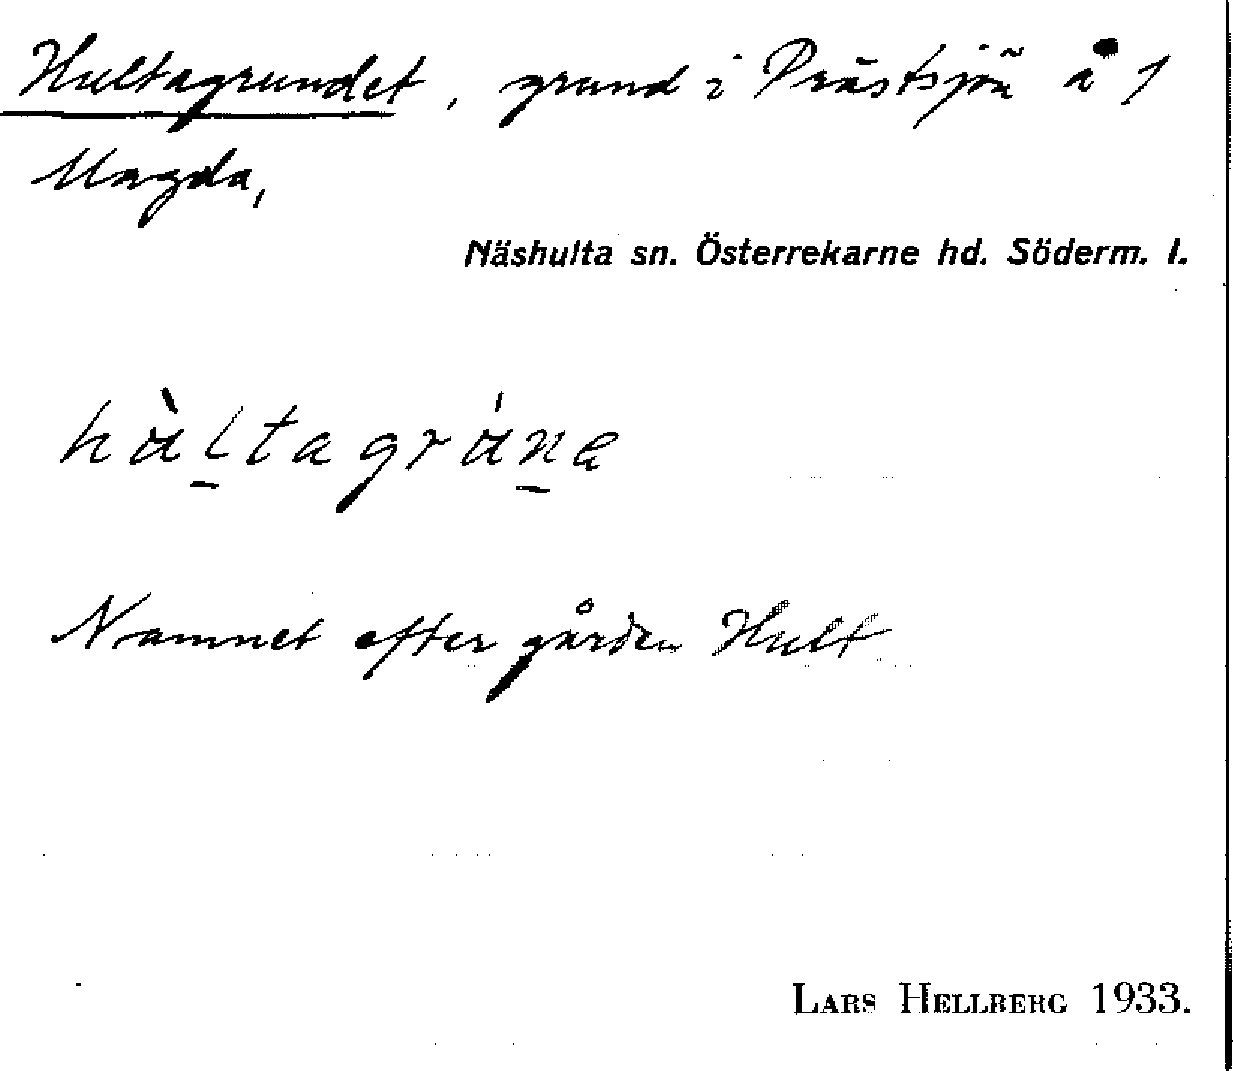 Hultagrundet, grund i Prästsjön å 1
Magda,
Näshulta sn. Österrekarne hd. Söderm. l.
hàltagránа
Namnet efter gården Hult
LARS HELLBERG 1933.